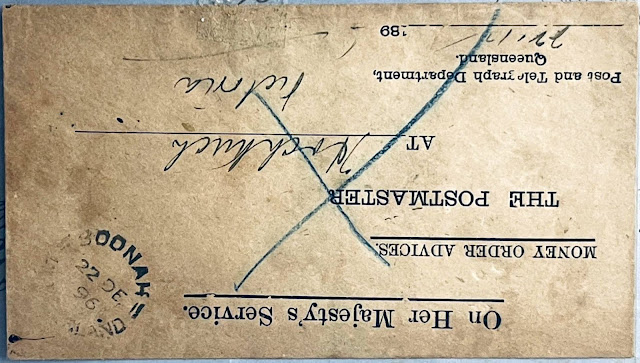 On Her Majesty's Service.
MONEY ORDER ADVICES.
THE POSTMASTER
AT
Victoria
Post and Telegraph Department,
Queensland.
189
BOONAH
22 DE
96
LAND